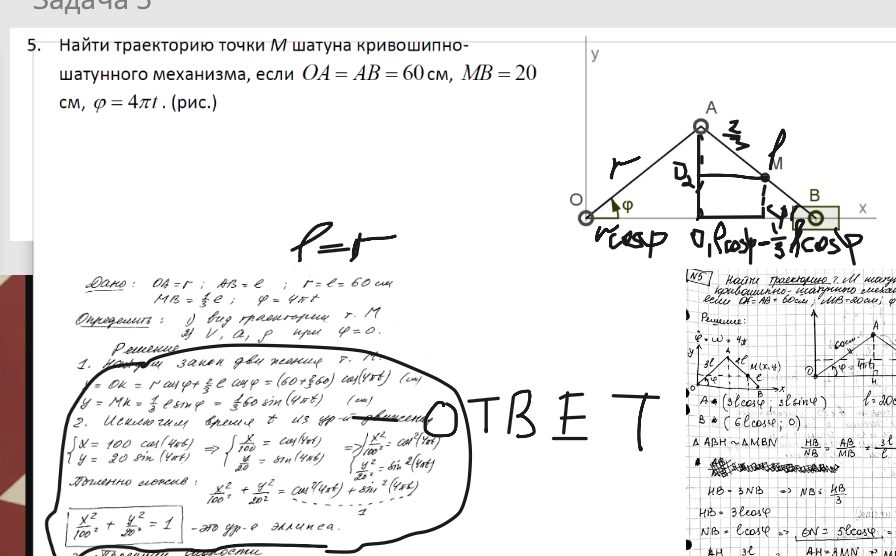 Задача 5
5. Найти траекторию точки M шатуна кривошипно-
шатунного механизма, если OA = AB = 60 см, MB = 20
см, φ = 4πt . (рис.)
y
A
2/3
l
M
r
O₂
O
φ
y
B
x
rcosφ O₁ lcosφ - 1/3 lcosφ
l = r
Дано: OA = r ; AB = l ; r = l = 60 см
MB = 1/3 l ; φ = 4πt
Определить: 1) вид траектории т. M
2) V, a, ρ при φ = 0.
Решение
1. закон движения т. M.
x = OK = r cosφ + 2/3 l cosφ = (60 + 2/3 60) cos(4πt) (см)
y = MK = 1/3 l sinφ = 1/3 60 sin(4πt) (см)
2. Исключим время t из ур-й движения
{x = 100 cos(4πt) y = 20 sin(4πt) => {x/100 = cos(4πt) y/20 = sin(4πt) => {x²/100² = cos²(4πt) y²/20² = sin²(4πt)
ОТВЕТ
Почленно сложив: x²/100² + y²/20² = cos²(4πt) + sin²(4πt)
1
x²/100² + y²/20² = 1 - это ур-е эллипса.
N5 Найти траекторию т. M
кривошипно-
если OA = AB = 60см; MB = 20см;
Решение:
A
3l
2l
M(x,y)
l
φ
B
x
y
60см
A
φ = 4πt
A (3lcosφ; 3lsinφ)
l = 20с
B (6lcosφ; 0)
Δ ABH ~ ΔMBN HB/NB = AB/MB = 3l/l
HB = 3NB => NB = HB/3
HB = 3lcosφ
NB = lcosφ => ON = 5lcosφ
AH 3l AH = 3MN